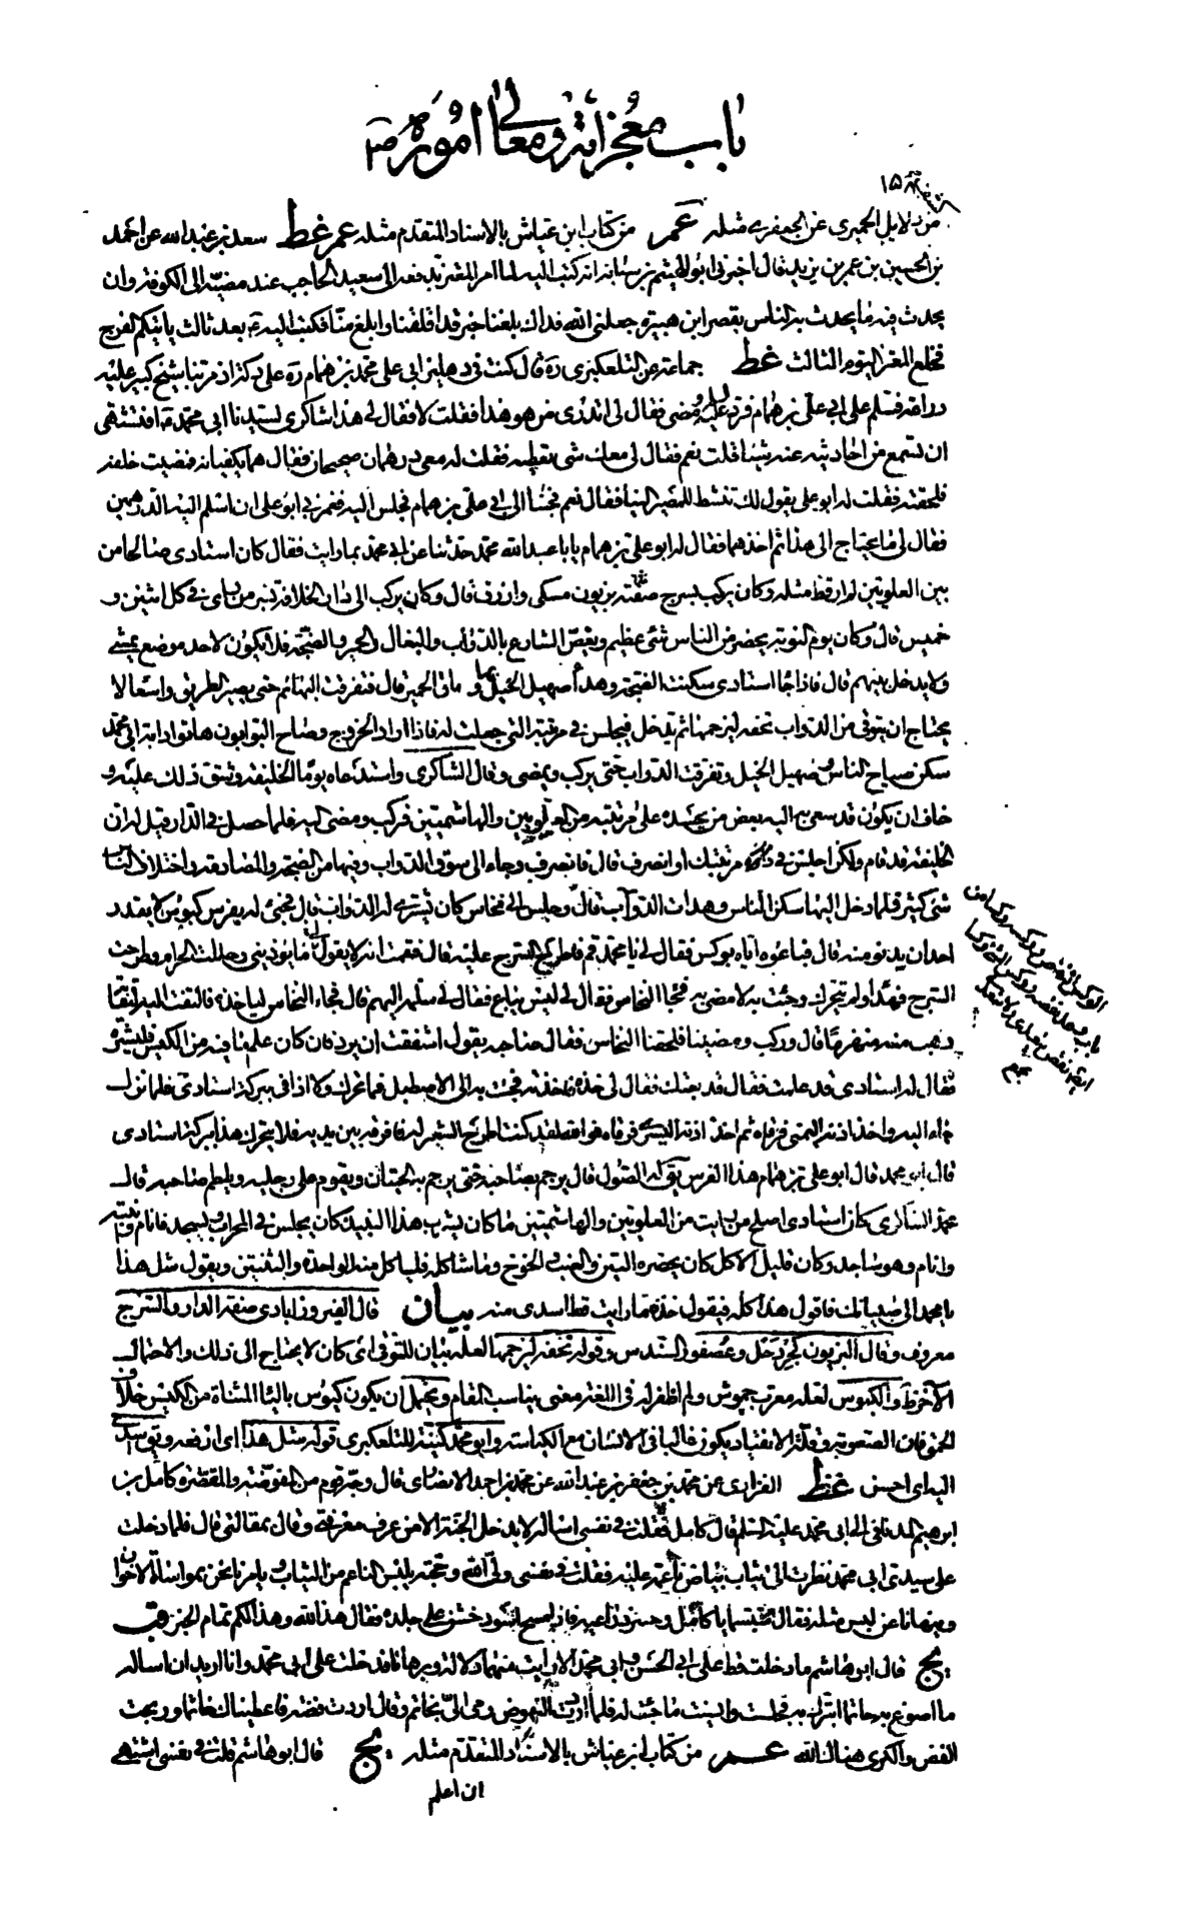 باب معجزاته ومعالي اموره ص
من دلايل الحميري عن الجعفري مثله عمر من كتاب ابن عياش بالاسناد المتقدم مثله عمر غط سعد بن عبد الله عن احمد
بن الحسين بن عمر بن يزيد قال اخبرني ابو الهيثم بن سيابة انه كتب اليه لما امر المعتز بدفعه الى سعيد الحاجب عند مضيه الى الكوفة وان
يحدث فيه ما يحدث به الناس بقصر ابن هبيرة جعلني الله فداك بلغنا خبر قد اقلقنا وابلغ منا فكتب اليه ع بعد ثالث ياتيكم الفرج
فخلع المعتز اليوم الثالث غط جماعة عن التلعكبري ره قال كنت في دهليز ابي علي محمد بن همام ره على دكة اذ مر بنا شيخ كبير عليه
دراعة فسلم على ابي علي بن همام فرد عليه السلم ومضى فقال لي اتدري من هو هذا فقلت لا فقال لي هذا شاكري لسيدنا ابي محمد ع افتشتهي
ان تسمع من احاديثه عنه شيئا قلت نعم فقال لي معك شي تعطيه فقلت له معي درهمان صحيحان فقال هما يكفيانه فمضيت خلفه
فلحقته فقلت له ابو علي يقول لك تنشط للمصير الينا فقال نعم فجئنا الى ابي علي بن همام فجلس اليه فغمزني ابو علي ان اسلم اليه الدرهمين
فقال لي ما يحتاج الى هذا ثم اخذهما فقال له ابو علي بن همام يا با عبد الله محمد حدثنا عن ابي محمد بما رايت فقال كان استادي صالحا من
بين العلويين لم ار قط مثله وكان يركب بسرج صفته بزيون مسكي وازرق قال وكان يركب الى دار الخلافة بسر من راى في كل اثنين و
خميس قال وكان يوم النوبة يحضر من الناس شئ عظيم ويغص الشارع بالدواب والبغال والحمير والضجة فلا يكون لاحد موضع يمشي
ولا يدخل بينهم قال فاذا جا استادي سكنت الضجة وهدا صهيل الخيل و نهاق الحمير قال فتفرقت البهائم حتى يصير الطريق واسعا لا
يحتاج ان يتوقى من الدواب تحفه ليزحمها ثم يدخل فيجلس في مرتبته التي جعلت له فاذا اراد الخروج وصاح البوابون هاتوا دابة ابي محمد
سكن صياح الناس وصهيل الخيل وتفرقت الدواب حتى يركب ويمضي وقال الشاكري واستدعاه يوما الخليفة وشق ذلك عليه و
خاف ان يكون قد سعى به اليه بعض من يحسده على مرتبته من العلويين والهاشميين فركب ومضى اليه فلما حصل في الدار قيل له ان
الخليفة قد قام ولكن اجلس في مرتبتك او انصرف قال فانصرف وجاء الى سوق الدواب وفيها من الضجة والمصادمة واختلاف الناس
شئ كثير فلما دخل اليها سكن الناس وهدات الدواب قال وجلس الى نخاس كان يشتري له الدواب قال فجئ له بفرس كبوس لا يقدر
احد ان يدنو منه قال فباعوه اياه بوكس فقال لي يا محمد قم فاطرح السرج عليه قال فقمت انه لا يقول لي ما يوذيني وحللت الحزام وطرحت
السرج فهدا ولم يتحرك وجئت به لامضي به فجا النخاس فقال لي ليس يباع فقال لي سلمه اليهم قال فجاء النخاس لياخذه فالتفت اليه التفاتا
ذهب منه منهزما قال وركب ومضينا فلحقنا النخاس فقال صاحبه يقول اشفقت ان يرد فان كان علم ما فيه من الكبس فليشتره
فقال له استادي قد علمت فقال قد بعتك فقال لي خذه فاخذته فجئت به الى الاصطبل فما تحرك ولا اذاني ببركة استادي فلما نزل
جاء اليه واخذ اذنه اليمنى فرقاه ثم اخذ اذنه اليسرى فرقاه فوالله لقد كنت اطرح الشعير له فافرقه بين يديه فلا يتحرك هذا ببركة استادي
قال ابو محمد قال ابو علي بن همام هذا الفرس يقال له الصئول قال يرجم بصاحبه حتى يرجم به الحيطان ويقوم على رجليه ويلطم صاحبه قال
محمد الشاكري كان استادي اصلح من رايت من العلويين والهاشميين ما كان يشرب هذا النبيذ كان يجلس في المحراب ويسجد فانام وانتبه
وانام وهو ساجد وكان قليل الاكل كان يحضره التين والعنب والخوخ وما شاكله فياكل منه الواحدة والثنتين ويقول شل هذا
يا محمد الى صبيانك فاقول هذا كله فيقول خذه ما رايت قط اسدى منه بيان قال الفيروزابادي صفة الدار والسرج
معروف وقال البزيون كجردحل وعصفور السندس وقوله تحفه ليزحمها لعله بيان للتوقي اي كان لا يحتاج الى ذلك والاحتمال
الاخر ظ والكبوس لعله معرب چموش ولم اظفر له في اللغة معنى يناسب المقام ويحتمل ان يكون كيوس بالياء المثناة من الكيس خلاف
الحمق فان الصعوبة وقلة الانقياد يكون غالبا في الانسان مع الكياسة وابو محمد كنية للتلعكبري قوله شل هذا اي ارفعه ويقى اسدى
اليه اي احسن غط الفزاري عن محمد بن جعفر بن عبد الله عن محمد بن احمد الانصاري قال وجه قوم من المفوضة والمقصرة كامل بن
ابرهيم المدني الى ابي محمد عليه السلم قال كامل فقلت في نفسي اساله لا يدخل الجنة الا من عرف معرفتي وقال بمقالتي قال فلما دخلت
على سيدي ابي محمد نظرت الى ثياب بياض ناعمة عليه فقلت في نفسي ولي الله وحجته يلبس الناعم من الثياب ويامرنا نحن بمواساة الاخوان
وينهانا عن لبس مثله فقال متبسما يا كامل وحسر ذراعيه فاذا مسح اسود خشن على جلده فقال هذا لله وهذا لكم تمام الخبر قب
يج قال ابو هاشم ما دخلت قط على ابي الحسن وابي محمد الا رايت منهما دلالة وبرهانا فدخلت على ابي محمد وانا اريد ان اساله
ما اصوغ به خاتما اتبرك به فجلست وانسيت ما جئت له فلما اردت النهوض رمى الي بخاتم وقال اردت فضة فاعطيناك خاتما وربحت
الفص والكرى هناك الله عمر من كتاب ابن عياش بالاسناد المتقدم مثله يج قال ابو هاشم قلت في نفسي اشتهي
ان اعلم